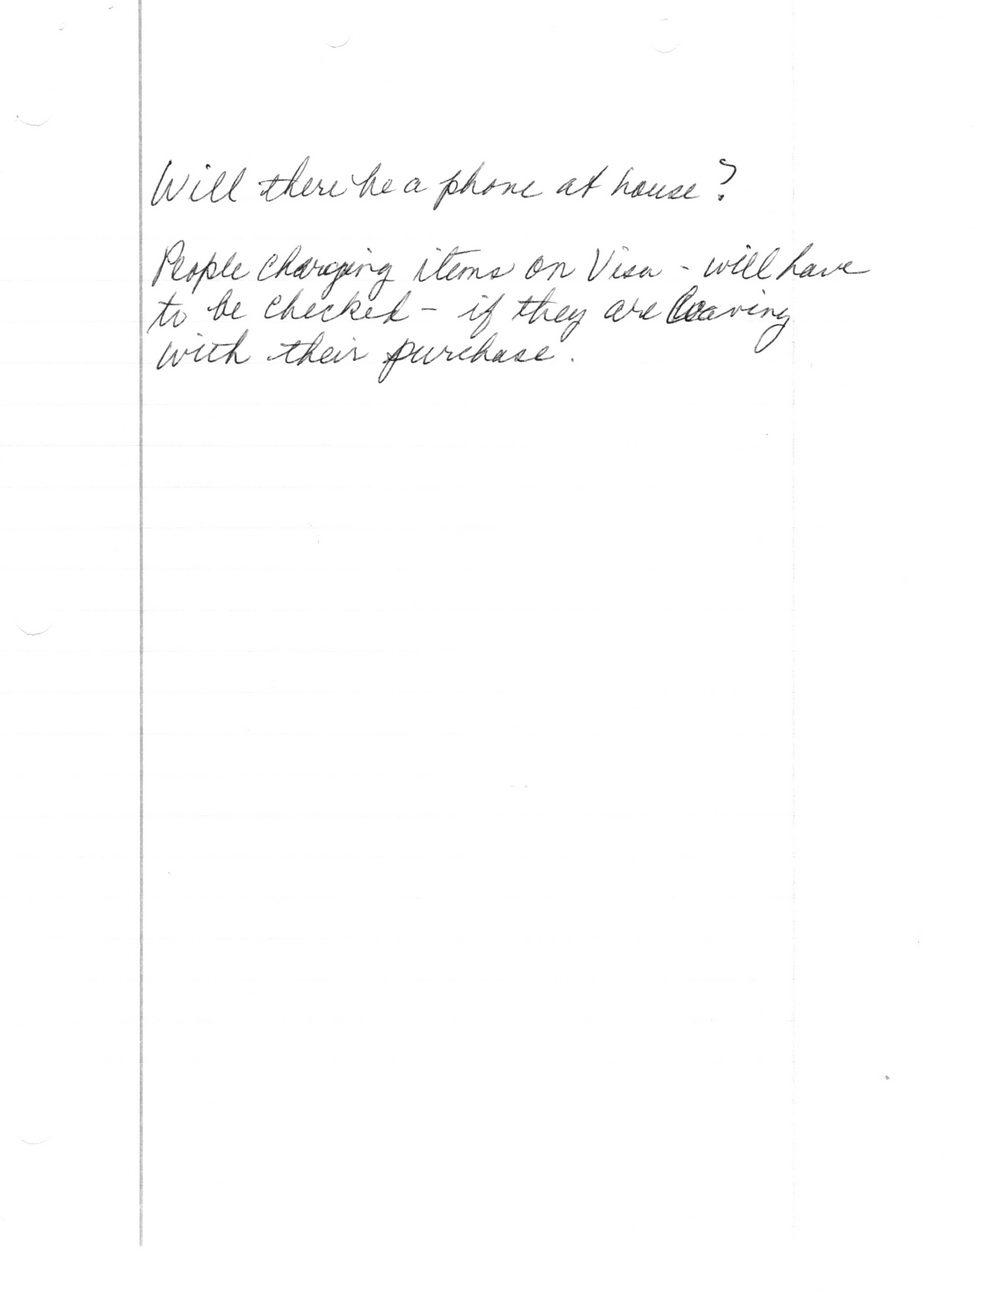 Will there be a phone at house?
People charging items on Visa - will have
to be checked - if they are leaving
with their purchase.